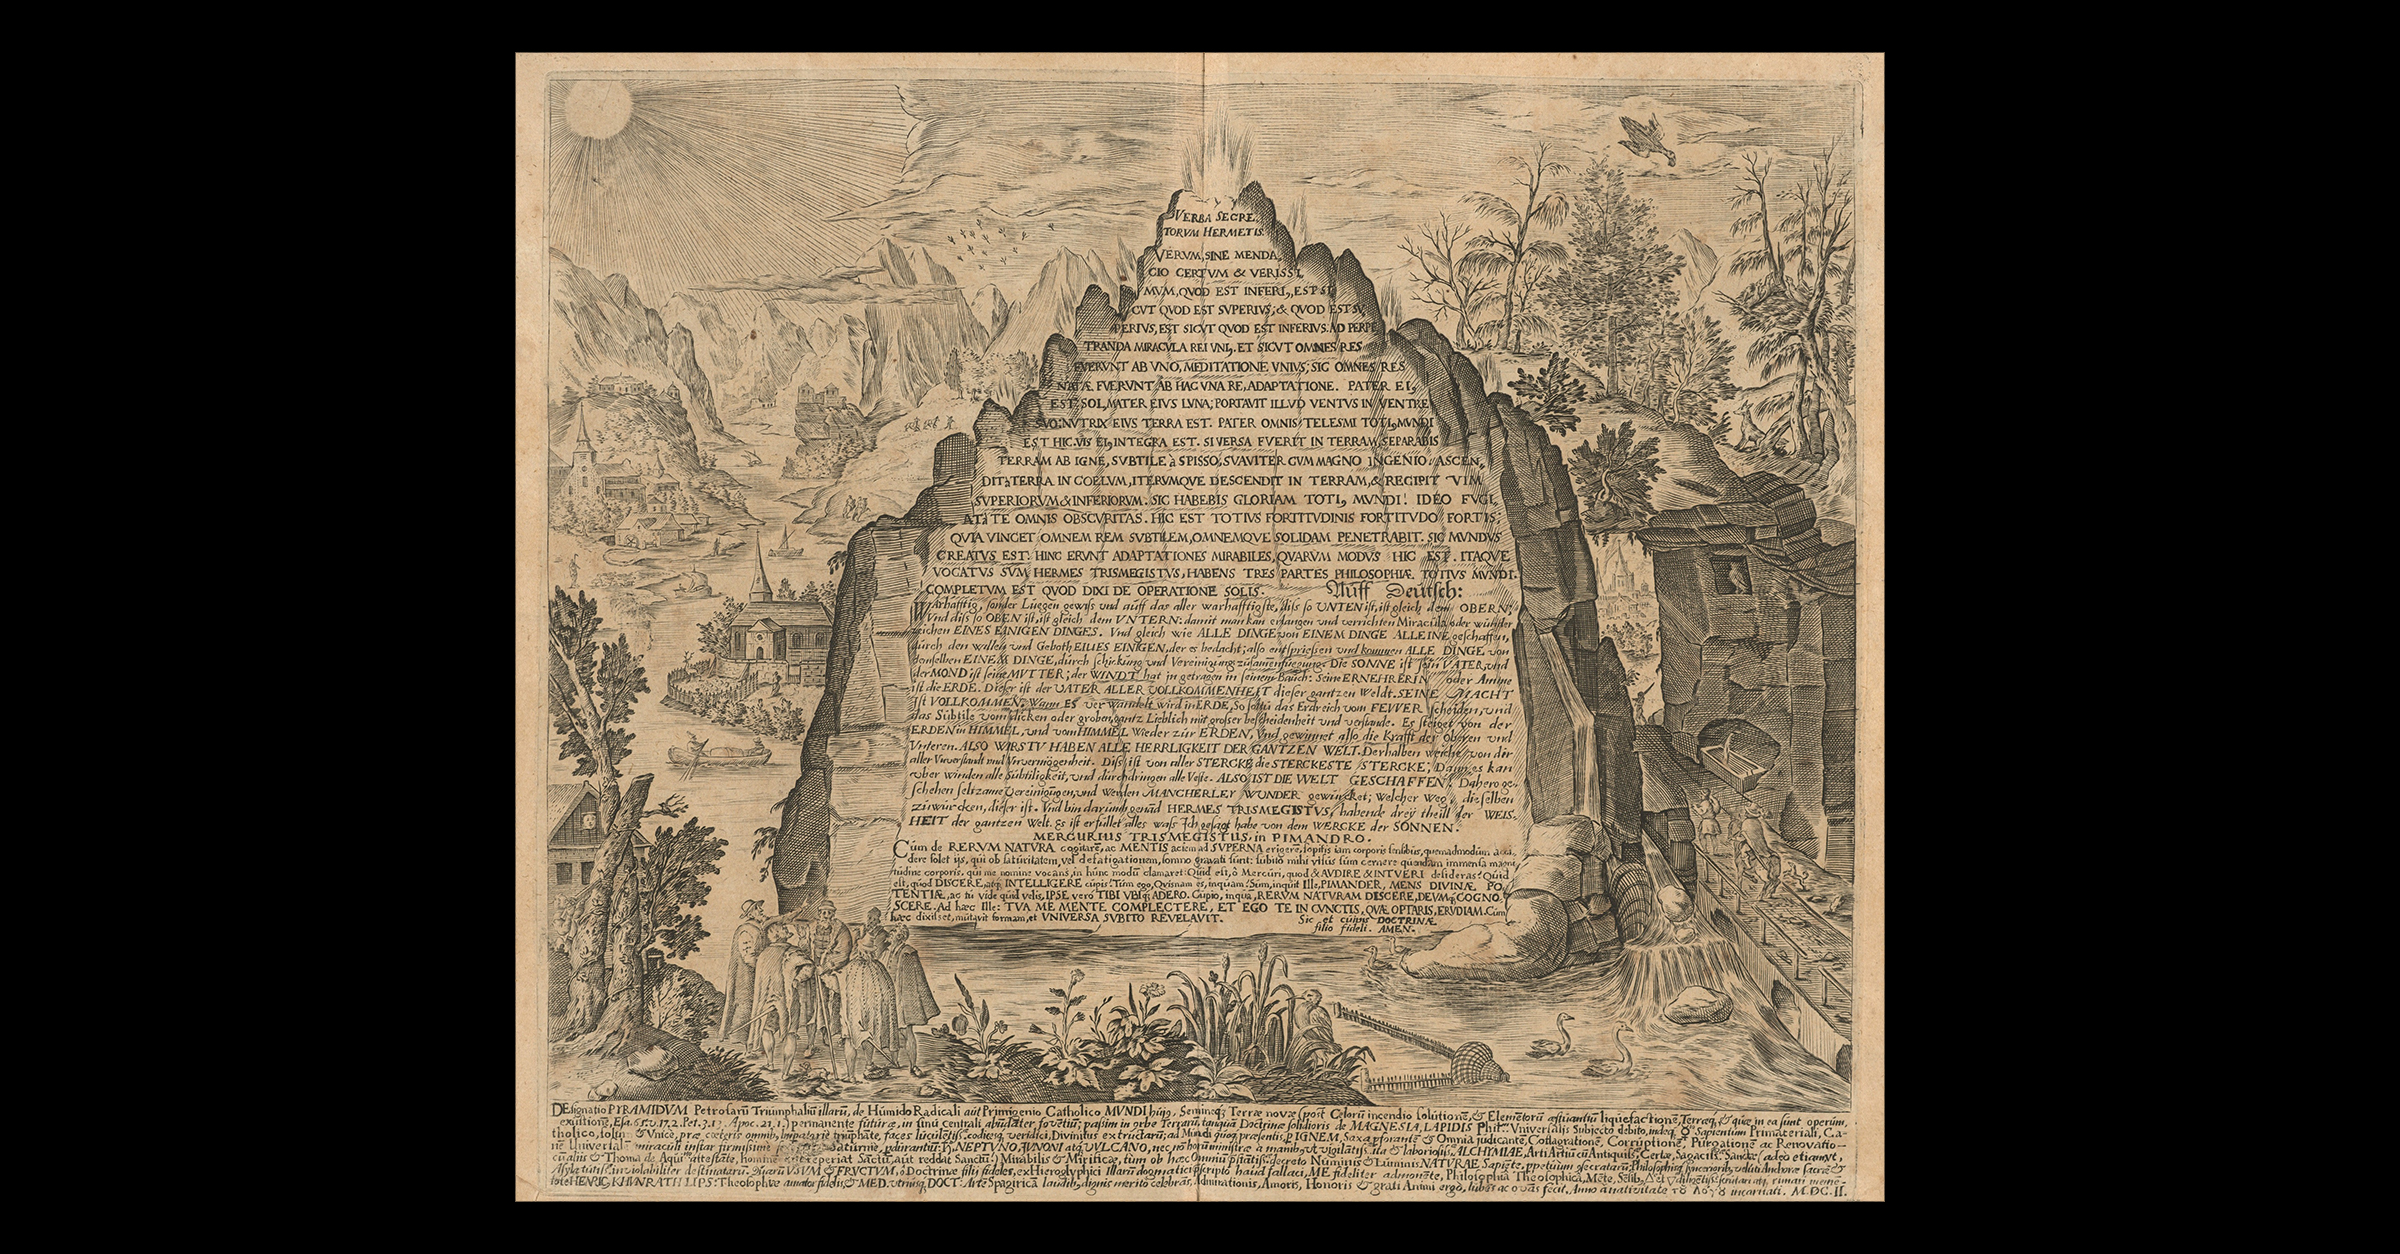 VERBA SECRE,
TORVM HERMETIS.
VERVM, SINE MENDA,
CIO CERTVM & VERISSI,
MVM, QVOD EST INFERI9, EST SI,
CVT QVOD EST SVPERIVS; & QVOD EST SV,
PERIVS, EST SICVT QVOD EST INFERIVS. AD PERPE
TRANDA MIRACVLA REI VNI9. ET SICVT OMNES RES
FVERVNT AB VNO, MEDITATIONE VNIVS; SIC OMNES RES
NATÆ FVERVNT AB HAC VNA RE, ADAPTATIONE. PATER EI9
EST SOL, MATER EIVS LVNA; PORTAVIT ILLVD VENTVS IN VENTRE
SVO: NVTRIX EIVS TERRA EST. PATER OMNIS TELESMI TOTI9 MVNDI
EST HIC. VIS EI9 INTEGRA EST. SI VERSA FVERIT IN TERRAM, SEPARABIS
TERRAM AB IGNE, SVBTILE à SPISSO, SVAVITER CVM MAGNO INGENIO. ASCEN,
DIT à TERRA IN COELVM, ITERVMQVE DESCENDIT IN TERRAM, & RECIPIT VIM
SVPERIORVM & INFERIORVM. SIC HABEBIS GLORIAM TOTI9 MVNDI! IDEO FVGI,
AT à TE OMNIS OBSCVRITAS. HIC EST TOTIVS FORTITVDINIS FORTITVDO FORTIS;
QVIA VINCET OMNEM REM SVBTILEM, OMNEMQVE SOLIDAM PENETRABIT. SIC MVNDVS
CREATVS EST. HINC ERVNT ADAPTATIONES MIRABILES, QVARVM MODVS HIC EST. ITAQVE
VOCATVS SVM HERMES TRISMEGISTVS, HABENS TRES PARTES PHILOSOPHIÆ TOTIVS MVNDI.
COMPLETVM EST QVOD DIXI DE OPERATIONE SOLIS. Auff Deutsch:
WArhafftig, sonder Liegen gewiss und auff das aller warhafftigste, diss so UNTEN ist, ist gleich dem OBERN;
Vnd diss so OBEN ist, ist gleich dem VNTERN: damit man kan erlangen und verrichten Miracula oder wunder
zeichen EINES EINIGEN DINGES. Vnd gleich wie ALLE DINGE von EINEM DINGE ALLEINE geschaffen,
durch den willen und Geboth EINES EINIGEN, der es bedacht; also entspriessen und kommen ALLE DINGE von
demselben EINEM DINGE, durch schickung und Vereinigung zusammenfuegung. Die SONNE ist sein VATER, und
der MOND ist seine MVTTER; der WINDT hat in getragen in seinem Bauch: Seine ERNEHRERIN oder Amme
ist die ERDE. Dieser ist der VATER ALLER VOLLKOMMENHEIT dieser gantzen Weldt. SEINE MACHT
ist VOLLKOMMEN, Wann ES verwandelt wird in ERDE, So soltu das Erdreich vom FEWER scheiden, und
das Subtile vom dicken oder groben, gantz Lieblich mit grosser bescheidenheit und verstande. Es steiget von der
ERDEN in HIMMEL, und vom HIMMEL wieder zur ERDEN, Vnd gewinnet also die Krafft der Oberen und
Vnteren. ALSO WIRSTU HABEN ALLE HERRLIGKEIT DER GANTZEN WELT. Derhalben weiche von dir
aller Vnverstandt und Vnvermögenheit. Diss ist von aller STERCKE die STERCKESTE STERCKE; Dann es kan
vber winden alle Subtiligkeit, und durchdringen alle Veste. ALSO IST DIE WELT GESCHAFFEN. Dahero ge-
schehen seltzame Vereinigungen, und werden MANCHERLEY WUNDER gewürcket; welcher Weg, dieselben
zuwürcken, dieser ist. Vnd bin darumb genand HERMES TRISMEGISTVS, habende drey theill der WEIS-
HEIT der gantzen Welt. Es ist erfüllet alles wass Ich gesagt habe von dem WERCKE der SONNEN.
MERCURIUS TRISMEGISTUS, in PIMANDRO.
Cum de RERUM NATURA cogitarem, ac MENTIS aciem ad SUPERNA erigerem, sopitis iam corporis sensibus, quemadmodum acci,
dere solet ijs, qui ob saturitatem, vel defatigationem, somno gravati sunt: subito mihi visus sum cernere quendam immensa magni
tudine corporis, qui me nomine vocans, in hunc modum clamaret: Quid est, ô Mercuri, quod & AVDIRE & INTVERI desideras? Quid
est, quod DISCERE, atq; INTELLIGERE cupis? Tum ego, Quisnam es, inquam? Sum, inquit Ille, PIMANDER, MENS DIVINÆ PO
TENTIÆ, ac tu vide quid velis, IPSE vero TIBI VBIq; ADERO. Cupio, inquā, RERUM NATURAM DISCERE, DEVMq; COGNO
SCERE. Ad hæc Ille: TVA ME MENTE COMPLECTERE, ET EGO TE IN CVNCTIS, QVÆ OPTARIS, ERVDIAM. Cum
hæc dixisset, mutavit formam, et UNIVERSA SUBITO REVELAVIT.
Sic et cuivis DOCTRINÆ
filio fideli. AMEN.
DEsignatio PYRAMIDVM Petrosarū Triumphaliū illarū, de Humido Radicali aut Primigenio Catholico MVNDI huj9, Semineq; Terræ novæ (post Celorū incendio solutionē, & Elementorū æstuantiū liquefactionē, Terræq;, & quæ in ea sunt operum,
exustionē, Esa. 65. v. 17. 2. Pet. 3. 13. Apoc. 21, 1.) permanente futuræ, in sinu centrali abundāter fovetiū; passim in orbe Terrarū, tanquā Doctrinæ solidioris de MAGNESIA, LAPIDIS Phil. Vniversalis Subjecto debito, indeq; ☿ Sapientum Primateriali, Ca-
tholico, & Vnice, præ cæteris omnib9 triumphāte, faces luculētiss. codicesq; veridici, Divinitus extructarū; ad Mundi quoq; præsentis, p IGNEM, Saxa pforantē & Omnia judicante, Conflagrationē, Corruptionē, Purgationē ac Renovatio-
nē Universal miraculi instar firmissime NEPTUNO, JUNONI atq; VULCANO, nec no ALCHYMIAE, Arti Artiū cū Antiquiss. Certæ, Sagaciss. Sanctæ (adeo etiam, ut,
& Thoma de Aquin. attestāte, hominē aut reperiat Sāctū, aut reddat Sanctū) Mirabilis & Mirificæ, tum ob hæc decreto Numinis & Luminis NATURAE
inviolabiliter destinatarū. Quarū USUM & FRUCTUM, ô Doctrinæ filij fideles, ex Hieroglyphici Illarū dogmatici pscripto haud fallaci, ME fideliter admonēte, Philosophiā Theosophicā, Mēte
HENRIC. KHVNRATH LIPS: Theosophiæ amator fidelis, & MED. utriusq; DOCT: Arte Spagiricā laudib9 dignis merito celebrās, Admirationis, Amoris, Honoris & grati Animi ergo, lubēs ac ovās fecit. Anno à nativitate τοῦ λόγου incarnati. M.DC.II.